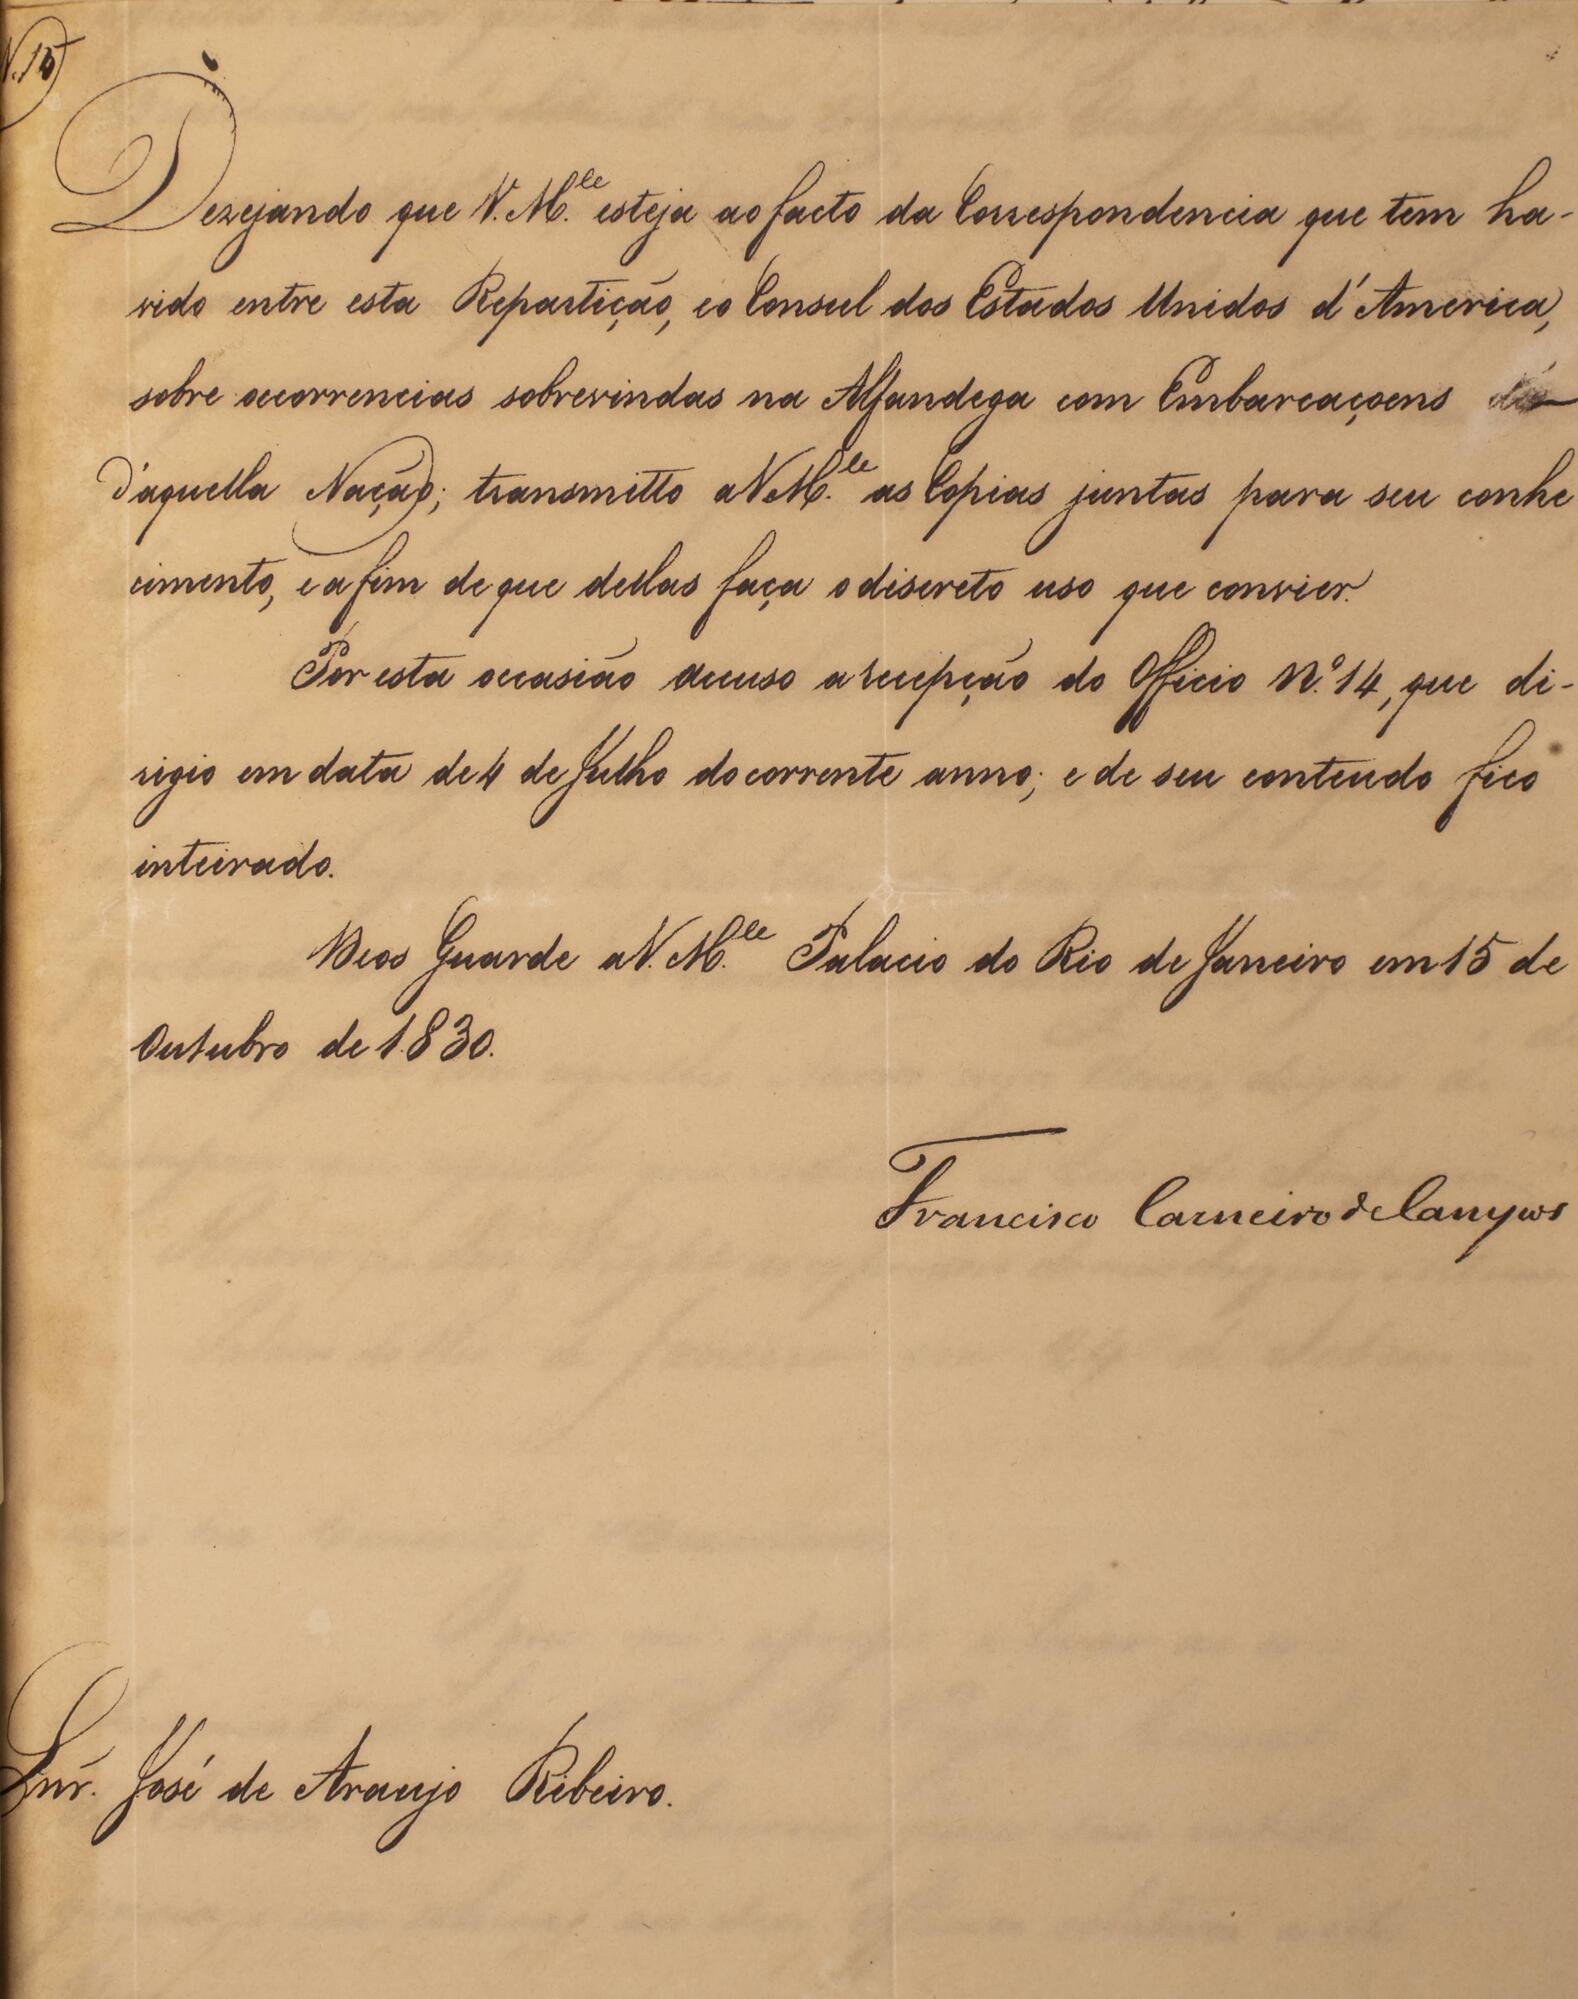 N. 15
Dezejando que V. M.ce esteja ao facto da Correspondencia que tem ha-
vido entre esta Repartição, e o Consul dos Estados Unidos d'America,
sobre occorrencias sobrevindas na Alfandega com Embarcaçoens
d'aquella Nação; transmitto a V. M.ce as Copias juntas para seu conhe
cimento, e a fim de que dellas faça o discreto uso que convier.
Por esta occasião accuso a recepção do Officio N.º 14, que di-
rigio em data de 4 de Julho do corrente anno; e de seu conteudo fico
inteirado.
Deos Guarde a V. M.ce Palacio do Rio de Janeiro em 15 de
Outubro de 1830.
Francisco Carneiro de Campos
Snr. José de Araujo Ribeiro.